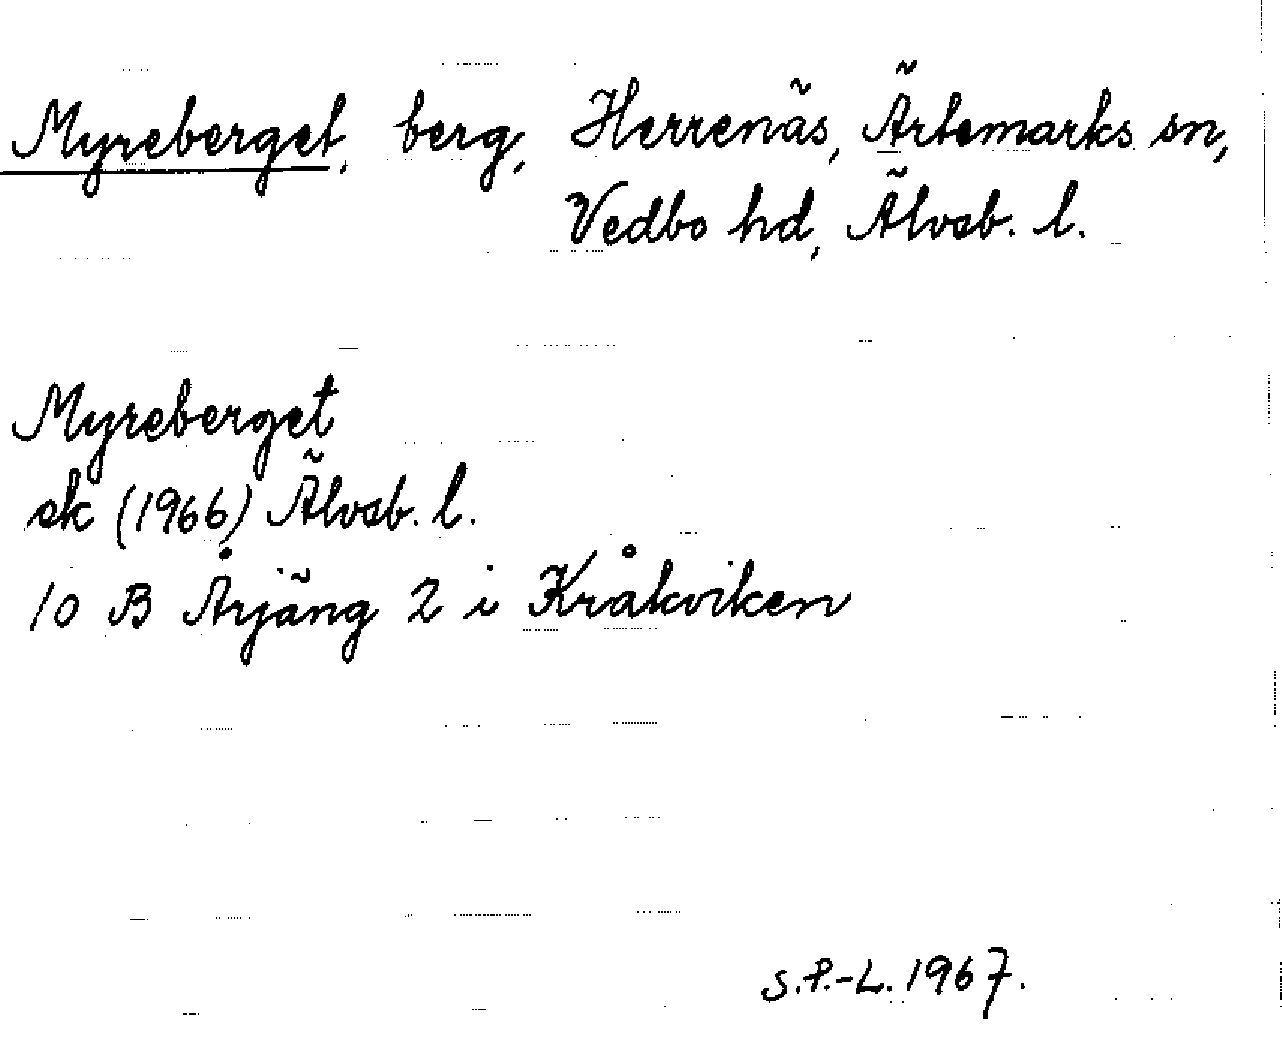 Myreberget, berg, Herrenäs, Ärtemarks sn,
Vedbo hd, Älvsb. l.
Myreberget
sk (1966) Älvsb. l.
10 B Årjäng 2 i Kråkviken
S.P.-L. 1967.